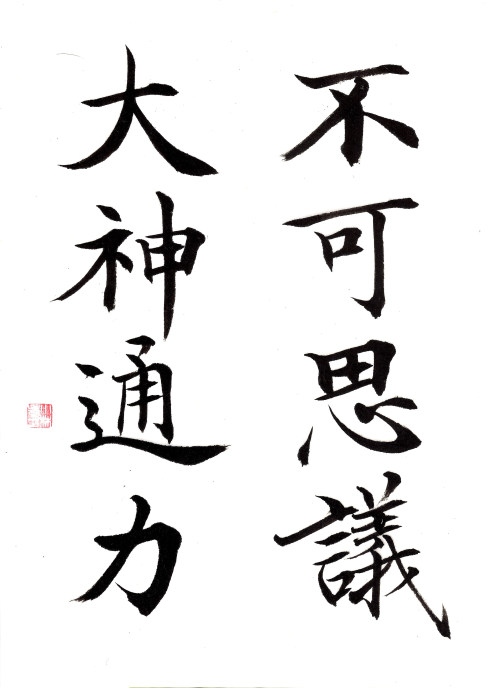 不可思議
大神通力